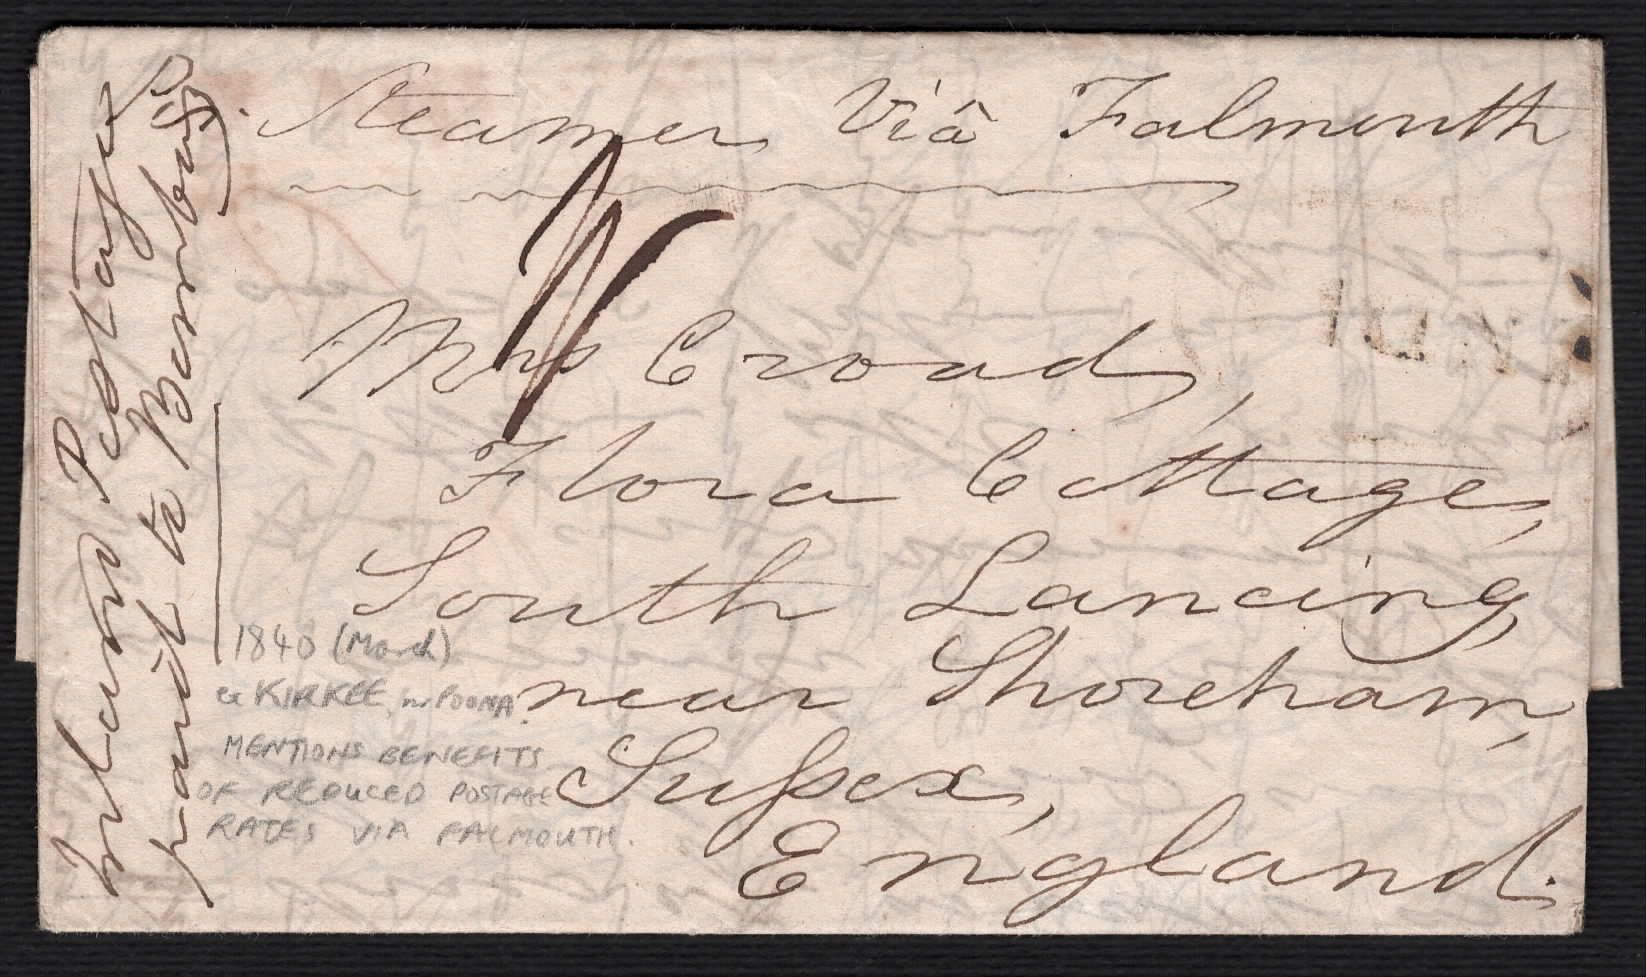 Steamer Viâ Falmouth
Inland Postage
paid to Bombay
Mrs Croad,
Flora Cottage,
South Lancing,
near Shoreham,
Sussex,
England.
1840 (March)
ex KIRKEE, nr POONA.
MENTIONS BENEFITS
OF REDUCED POSTAGE
RATES VIA FALMOUTH.